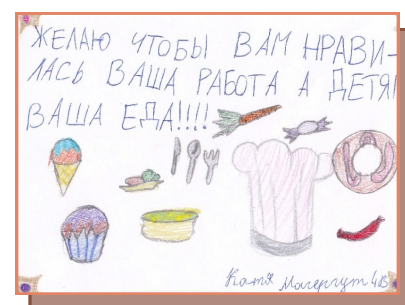 ЖЕЛАЮ ЧТОБЫ ВАМ НРАВИ-
ЛАСЬ ВАША РАБОТА А ДЕТЯМ
ВАША ЕДА!!!!
Катя 4Б